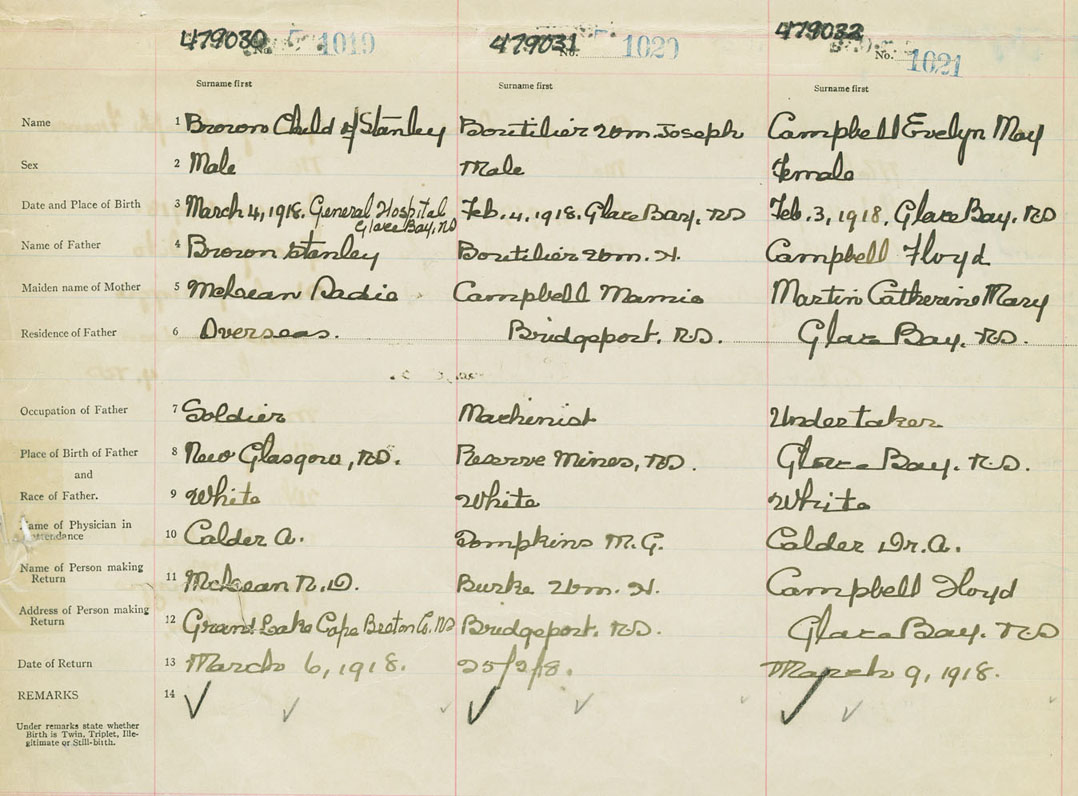 479030 No. 1019 479031 No. 1020 479032 No. 1621
Surname first Surname first Surname first
Name 1 Brown Child of Stanley Boutilier Wm. Joseph Campbell Evelyn May
Sex 2 Male Male Female
Date and Place of Birth 3 March 4, 1918. General Hospital Feb. 4, 1918. Glace Bay, NS Feb. 3, 1918, Glace Bay. NS
Glace Bay, NS
Name of Father 4 Brown Stanley Boutilier Wm. H. Campbell Floyd
Maiden name of Mother 5 McLean Sadie Campbell Mamie Martin Catherine Mary
Residence of Father 6 Overseas. Bridgeport. N.S. Glace Bay. N.S.
Occupation of Father 7 Soldier Machinist Undertaker
Place of Birth of Father 8 New Glasgow, N.S. Reserve Mines, N.S. Glace Bay. N.S.
and
Race of Father. 9 White White White
Name of Physician in
Attendance 10 Calder A. Tompkins M. G. Calder Dr. A.
Name of Person making
Return 11 McLean N. D. Burke Wm. H. Campbell Floyd
Address of Person making
Return 12 Grand Lake Cape Breton Co. NS Bridgeport. N.S. Glace Bay. N.S
Date of Return 13 March 6, 1918. 25/2/18. March 9, 1918.
REMARKS 14
Under remarks state whether
Birth is Twin, Triplet, Ille-
gitimate or Still-birth.